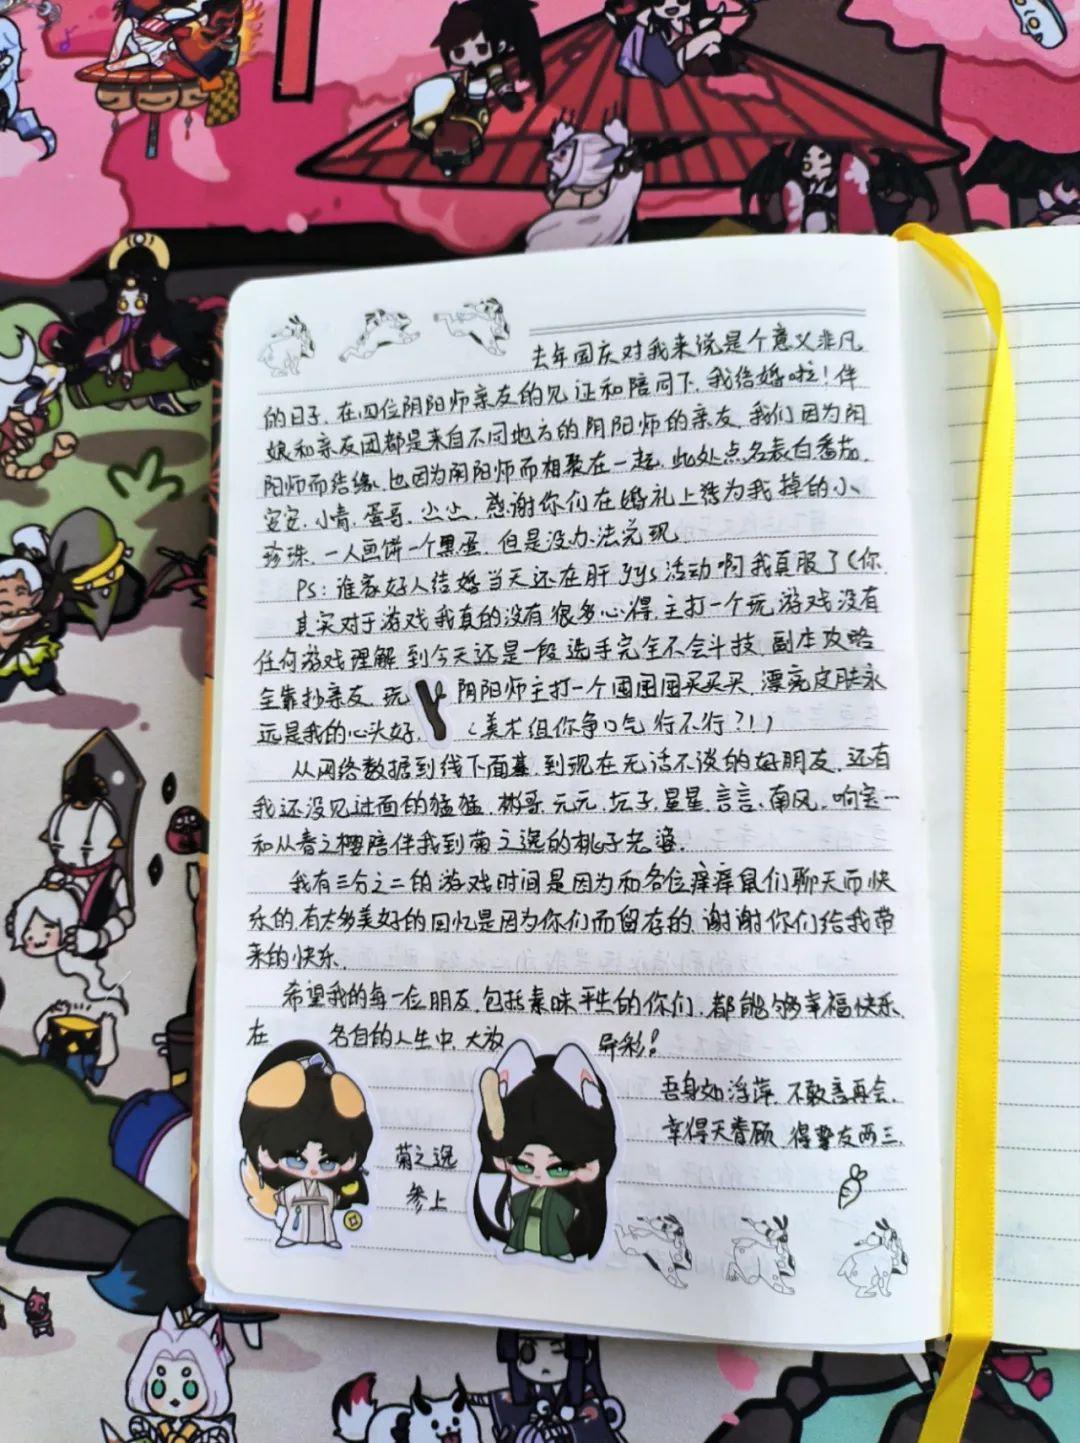 去年国庆对我来说是个意义非凡
的日子,在四位阴阳师亲友的见证和陪同下,我结婚啦!伴
娘和亲友团都是来自不同地方的阴阳师的亲友,我们因为阴
阳师而结缘,也因为阴阳师而相聚在一起,此处点名表白番茄,
安安,小青,蛋哥,尛尛,感谢你们在婚礼上为我掉的小
珍珠,一人画饼一个黑蛋,但是没办法兑现
PS:谁家好人结婚当天还在肝yys活动啊我真服了(你
其实对于游戏我真的没有很多心得,主打一个玩,游戏没有
任何游戏理解,到今天还是一段选手完全不会斗技,副本攻略
全靠抄亲友,玩 阴阳师主打一个囤囤囤买买买,漂亮皮肤永
远是我的心头好,(美术组你争口气行不行?!)
从网络数据到线下面基,到现在无话不谈的好朋友,还有
我还没见过面的猛猛,彬哥,元元,坛子,星星,言言,南风,响宝一
和从春之樱陪伴我到菊之逸的桃子老婆.
我有三分之二的游戏时间是因为和各位痒痒鼠们聊天而快
乐的,有太多美好的回忆是因为你们而留存的,谢谢你们给我带
来的快乐.
希望我的每一位朋友,包括素昧平生的你们,都能够幸福快乐,
在 各自的人生中,大放 异彩!
吾身如浮萍,不敢言再会,
幸得天眷顾,得挚友两三.
菊之逸
参上